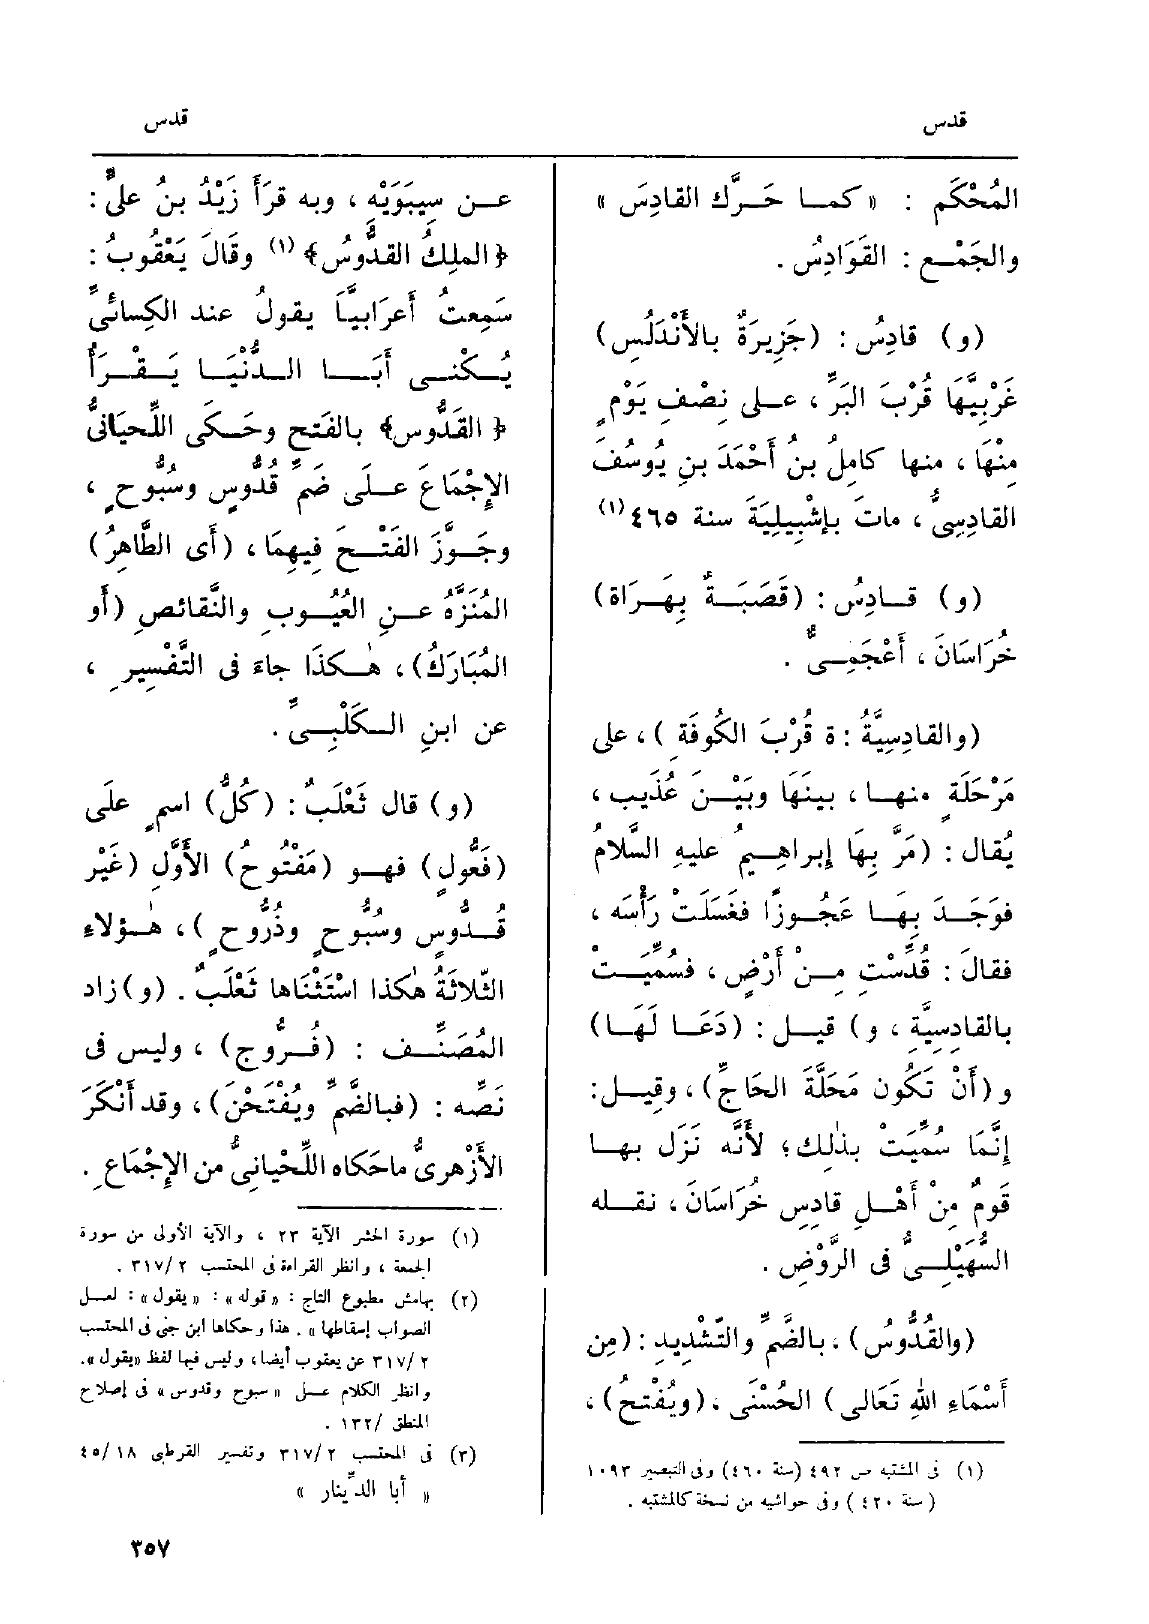 قدس
قدس
المُحْكَم : «كمـا حَـرَّك القادِسَ»
والجَمْـع : القَوَادِسُ .
(و) قادِسُ : (جَزِيرَةٌ بالأَنْدَلُسِ)
غَرْبِيَّهَا قُرْبَ البَرِّ ، عـلى نِصْفِ يَوْمٍ
مِنْهَا ، منها كامِلُ بنُ أَحْمَدَ بنِ يُوسُفَ
القادِسِىُّ ، ماتَ بإشْبِيلِيَةَ سنة ٤٦٥(١)
(و) قـادِسُ : (قَصَبَـةٌ بِهَـرَاةَ)
خُرَاسَانَ ، أَعْجَمِـىٌّ .
(والقَادِسِيَّةُ : ة قُرْبَ الكُوفَةِ) ، على
مَرْحَلَةٍ منهـا ، بينَهَا وبَيْـنَ عُذَيب ،
يُقال : (مَرَّ بِهَا إبراهِيـمُ عليهِ السَّلامُ
فوَجَـدَ بِهَـا عَجُـوزًا فغَسَلَتْ رَأْسَه ،
فقالَ : قُدِّسْتِ مِـنْ أَرْضٍ ، فسُمِّيَـتْ
بالقادِسِيَّةِ ، و) قيـل : (دَعَـا لَهَـا)
و (أَنْ تَكُون مَحَلَّةَ الحَاجِّ) ، وقِيـل :
إِنَّمَا سُمِّيَتْ بذٰلِك ؛ لأَنَّه نَزَل بهـا
قَومٌ مِنْ أَهْـلِ قادِسِ خُرَاسَانَ ، نقـله
السُّهَيْلِـىُّ فى الرَّوْضِ .
(والقُدُّوسُ) ، بالضَّمِّ والتَّشْدِيدِ : (مِن
أَسْمَاءِ اللهِ تَعَالَى) الحُسْنَى ، (ويُفْتحُ) ،
(١) فى المشتبه ص ٤٩٢ (سنة ٤٦٠) وفى التبصير ١٠٩٣
(سنة ٤٢٠) وفى حواشيه من نسخة كالمشتبه .
عـن سِيبَوَيْهِ ، وبه قَرَأَ زَيْدُ بنُ علىٍّ :
﴿المَلِكُ القَدُّوسُ﴾ (١) وقَالَ يَعْقُوبُ :
سَمِعتُ أَعرَابيًّا يقولُ عند الكِسائىِّ
يُـكْنـى أَبَـا الـدُّنْيَـا يَـقْـرَأُ
﴿القَدُّوس﴾ بالفَتح وحَـكَى اللِّحيَانىُّ
الإِجْمَاعَ عـلَى ضَمِّ قُدُّوسٍ وسُبُّوحٍ ،
وجَـوَّزَ الفَتْـحَ فِيهِمَا ، (أَى الطَّاهِرُ)
المُنَزَّهُ عـنِ العُيُـوبِ والنَّقائصِ (أَو
المُبَارَكُ) ، هٰـكَذَا جاءَ فى التَّفْسِيرِ ،
عن ابنِ الـكَلْبِـىِّ .
(و) قال ثَعْلَبٌ : (كُلُّ) اسمٍ علَى
(فَعُّولٍ) فهـو (مَفْتُوحُ) الأَوَّلِ (غَيْر
قُـدُّوسٍ وسُبُّوحٍ وذُرُّوحٍ) ، هٰـؤلاءِ
الثَّلاثَةُ هٰكذا اسْتَثْناها ثَعْلَبٌ . (و) زاد
المُصَنِّـف : (فُـرُّوج) ، وليس فى
نَصِّه : (فبالضَّمِّ ويُفْتَحْنَ) ، وقد أَنْكَرَ
الأَزْهرِىُّ ماحَكاه اللِّحْيانِىُّ من الإجْمَاعِ .
(١) سورة الحشر الآية ٢٣ ، والآية الأولى من سورة
الجمعة ، وانظر القراءة فى المحتسب ٢/ ٣١٧ .
(٢) بهامش مطبوع التاج : «قوله» : «يقول» : لعـل
الصواب إسقاطها» . هذا وحكاها ابن جنى فى المحتسب
٢/ ٣١٧ عن يعقوب أيضا ، وليس فيها لفظ «يقول» .
وانظر الكلام عـلى «سبوح وقدوس» فى إصلاح
المنطق /١٣٢ .
(٣) فى المحتسب ٢ /٣١٧ وتفسير القرطبى ١٨ /٤٥
«أبا الدِّينار»
٣٥٧